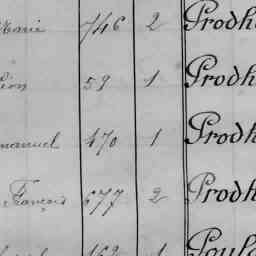 Marie 746 2 Prodh
Léon 59 1 Prodh
manuel 470 1 Prodh
François 677 2 Prodh
162 1 Poul